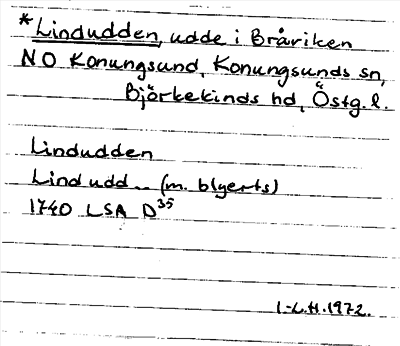 *Lindudden, udde i Bråviken
NO Konungsund, Konungsunds sn,
Björkekinds hd, Östg. l.
Lindudden
Lindudd -- (m. blyerts)
1740 LSA D35
I-L.H. 1972.